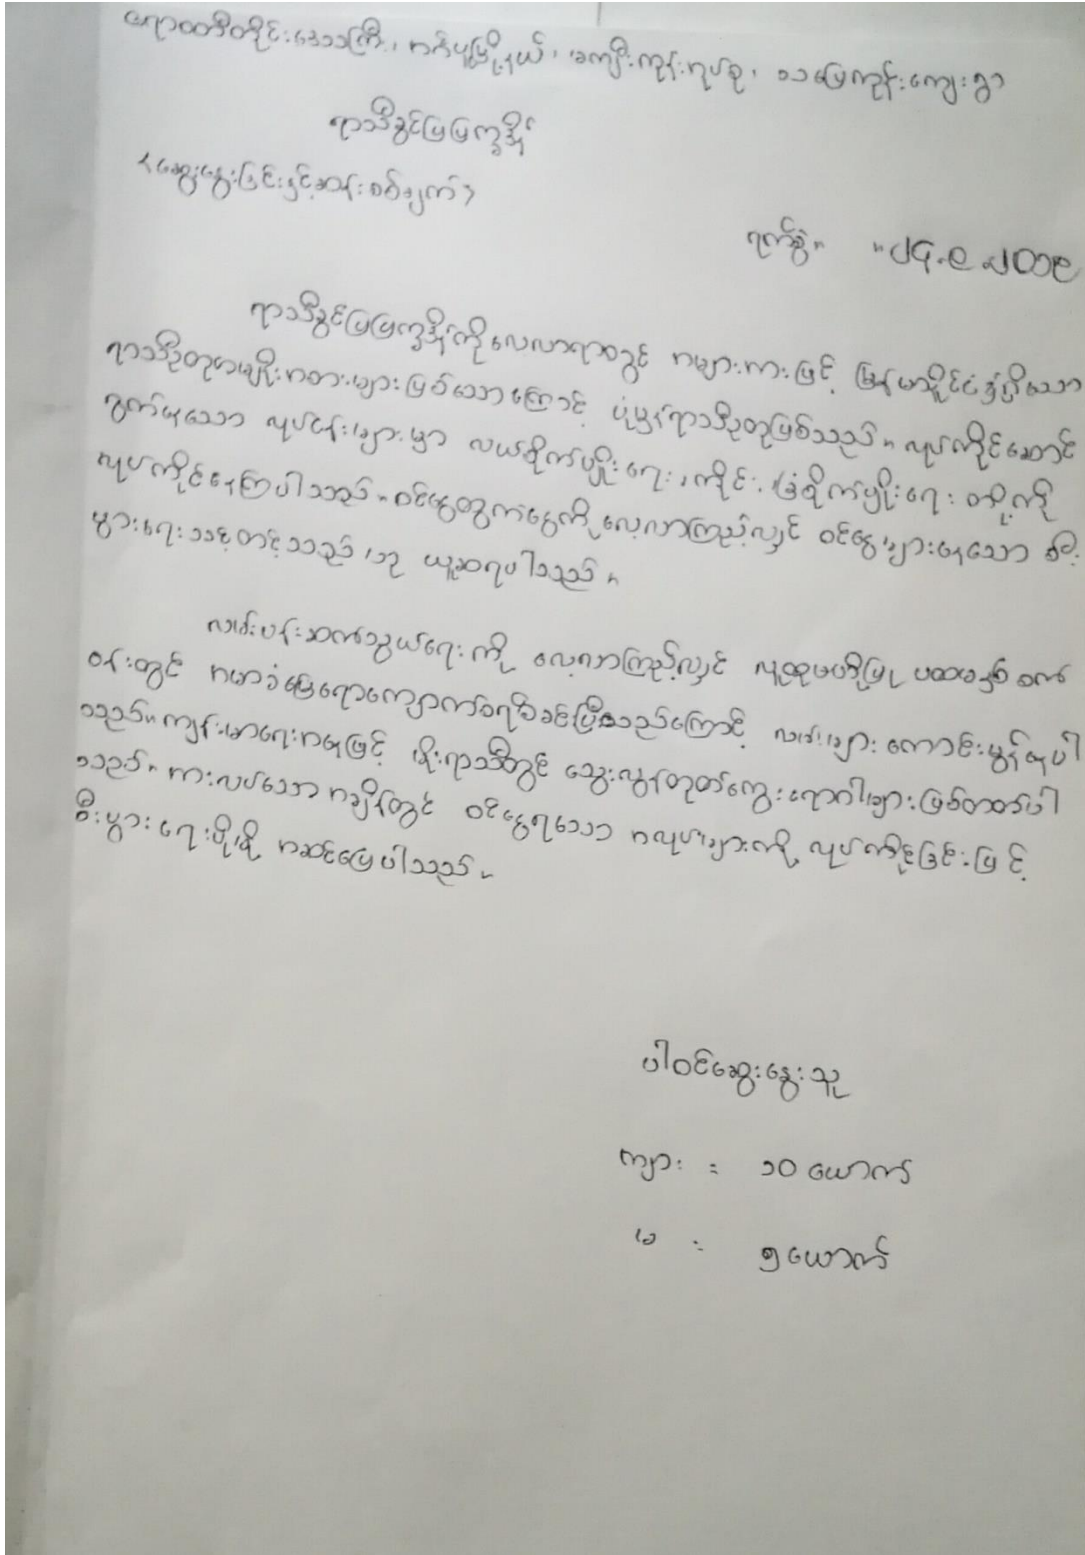 ဧရာဝတီတိုင်းဒေသကြီး၊ အင်္ဂပူမြို့နယ်၊ မကျီးကုန်းအုပ်စု၊ သာမြေကုန်းကျေးရွာ
ရာသီခွင်ပြပြက္ခဒိန်
<ဆွေးနွေးခြင်းနှင့်ဆန်းစစ်ချက်>
ရက်စွဲ။ ။၂၄.၉.၂၀၁၉
ရာသီခွင်ပြပြက္ခဒိန်ကိုလေလာရာတွင် အများအားဖြင့် မြန်မာနိုင်ငံ၌ရှိသော
ရာသီဥတုအမျိုးအစားများဖြစ်သောကြောင့် ပုံမှန်ရာသီဥတုဖြစ်သည်။ လုပ်ကိုင်ဆောင်
ရွက်နေသော လုပ်ငန်းများမှာ လယ်စိုက်ပျိုးရေး၊ ကိုင်း၊ ခြံစိုက်ပျိုးရေး တို့ကို
လုပ်ကိုင်နေကြပါသည်။ ဝင်ငွေထွက်ငွေကို လေ့လာကြည့်လျှင် ဝင်ငွေများနေသော စီး
ပွားရေးသင့်တင့်သည် ဟု ယူဆရပါသည်။
လမ်းပန်းဆက်သွယ်ရေးကို လေ့လာကြည့်လျှင် လူထုဗဟိုပြု ပထမနှစ် စက်
ဝန်းတွင် အမာခံမြေရောကျောက်ခရီးခင်းပြီးသည်ကြောင့် လမ်းများ ကောင်းမွန်နေပါ
သည်။ ကျန်းမာရေးအနေဖြင့် မိုးရာသီတွင် သွေးလွန်တုတ်ကွေးရောဂါများ ဖြစ်တတ်ပါ
သည်။ အားလပ်သော အချိန်တွင် ဝင်ငွေရသော အလုပ်များကို လုပ်ကိုင်ခြင်းဖြင့်
စီးပွားရေးဖို့ အဆင်ပြေပါသည်။
ပါဝင်ဆွေးနွေးသူ
ကျား = ၁၀ ယောက်
မ = ၅ ယောက်